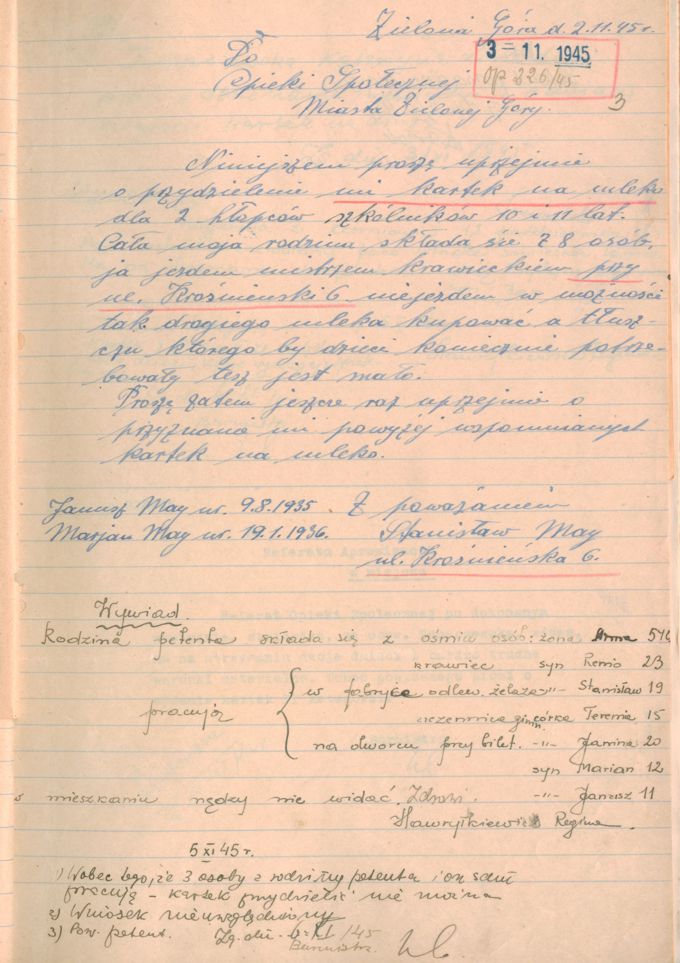 Zielona Góra d. 2.11.45r.
3 - 11. 1945
op 226/45
Do
Opieki Społecznej
Miasta Zielonej Góry.
3
Niniejszem proszę uprzejmie
o przydzielenie mi kartek na mleko
dla 2 hłopców szkólników 10 i 11 lat.
Cała moja rodzina składa sie z 8 osób.
ja jezdem mistrzem krawieckiem przy
ul. Krośnienski 6. niejezdem w możności
tak drogiego mleka kupować a tłusz-
czu którego by dzieci koniecznie potrze-
bowały tesz jest mało.
Proszę zatem jeszcze raz uprzejmie o
przyznane mi powyżej wspomnianych
kartek na mleko.
Janusz May ur. 9.8.1935 Z poważaniem
Marjan May ur. 19.1.1936. Stanisław May
ul. Krośnieńska 6.
Wywiad.
Rodzina petenta składa się z ośmiu osób: żona 54
krawiec syn Remo 23
w fabryce odlew. żelaza -"- Stanisław 19
pracują uczennica gimn. córka Terenia 15
na dworcu przy bilet. -"- Janina 20
syn Marian 12
w mieszkaniu nędzy nie widać. Zdrowi. -"- Janusz 11
Regina.
5 XI 45 r.
1) Wobec tego, że 3 osoby z rodziny petenta i on sam
pracują - kartek przydzielić nie można
2) Wniosek nieuwzględniony
3) Pow. petent. Zg. dn. XI/45
Burmistrz